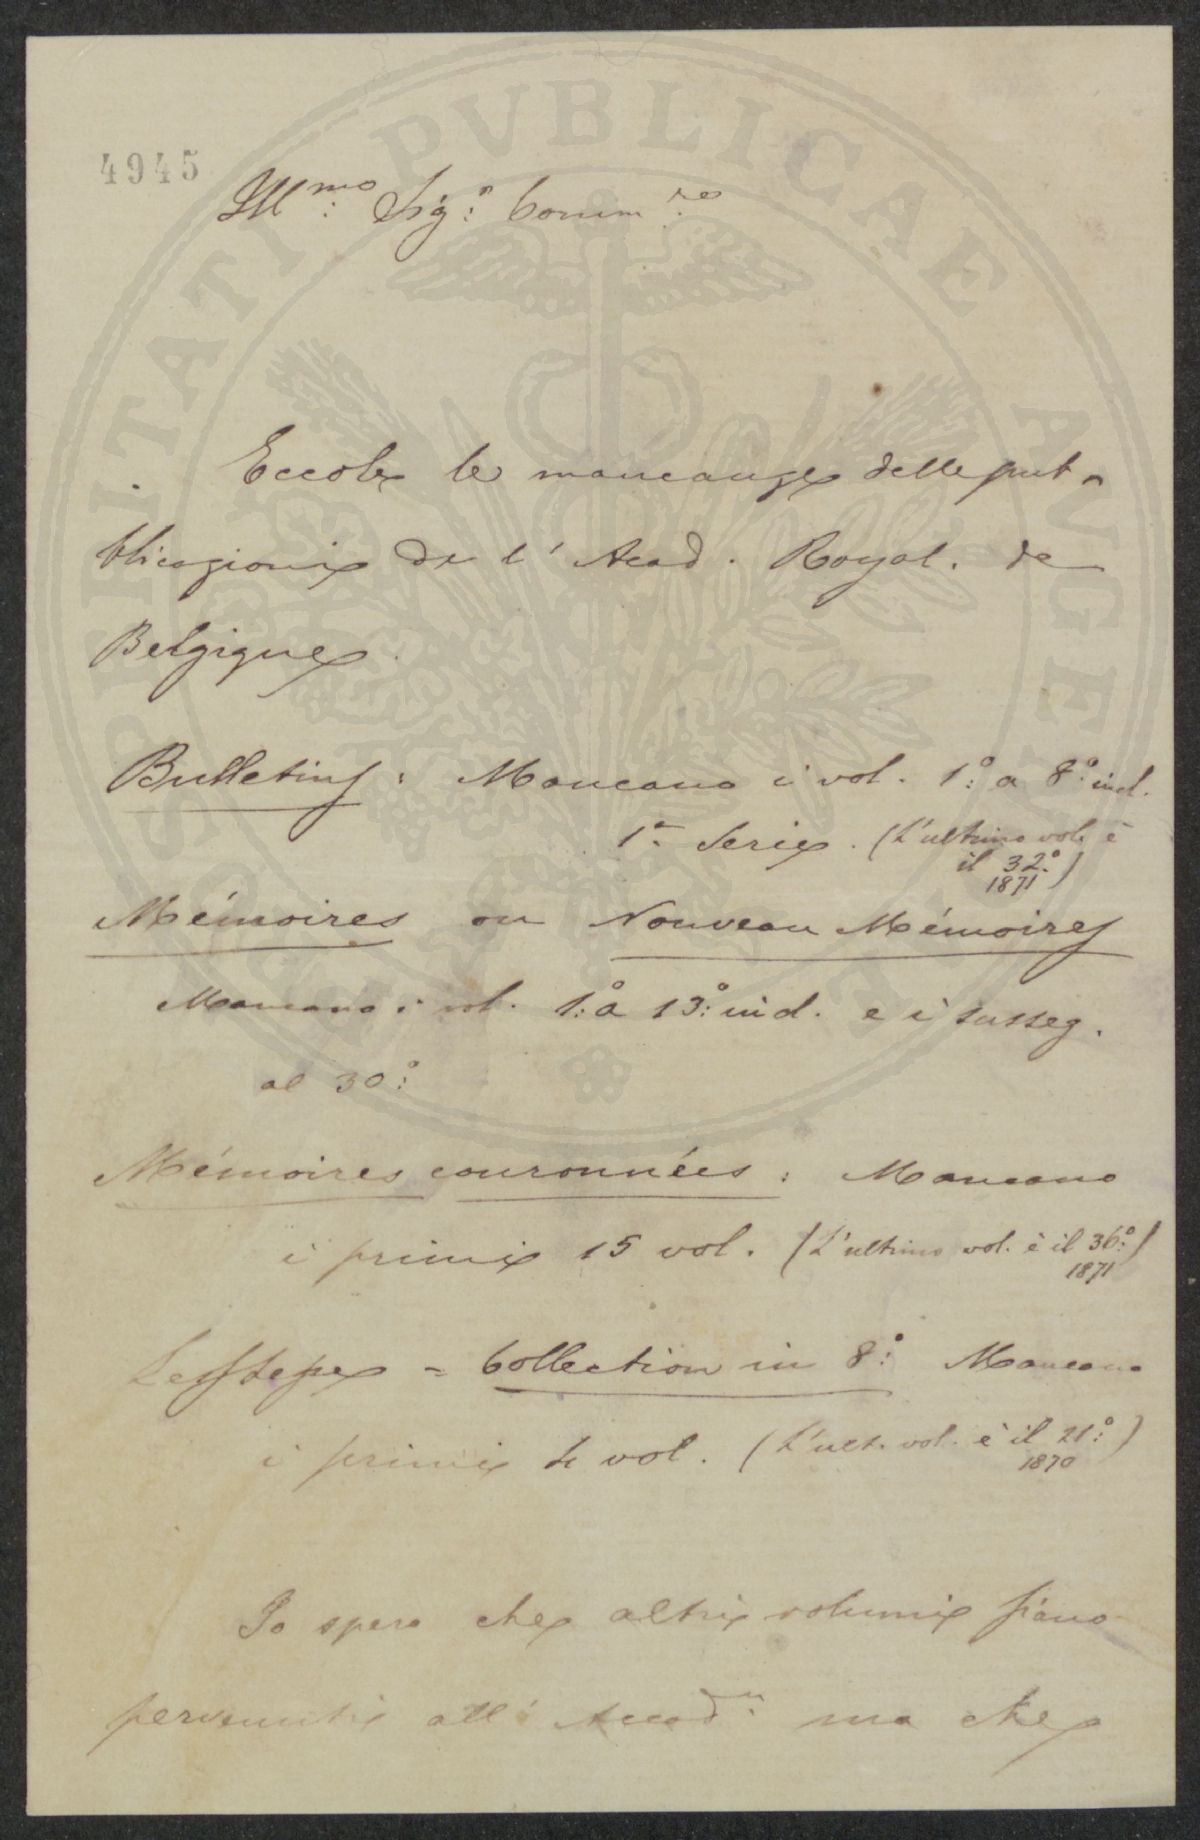 4945
Ill.mo Sig.r Comm.re
Eccole le mancanze delle pub-
blicazioni de l'Acad. Royal. de
Belgique.
Bulletins: Mancano i vol. 1.° a 8.° incl.
1a Serie. (L'ultimo vol. è
il 32.°)
1871
Mémoires ou Nouveau Mémoires
Mancano i vol. 1.° a 13.° incl. e i susseg.
al 30.°
Mémoires couronnées: Mancano
i primi 15 vol. (L'ultimo vol. è il 36.°)
1871
= Collection in 8.° Mancano
i primi 4 vol. (L'ult. vol. è il 21.°)
1870
Io spero che altri volumi siano
pervenuti all'Accad.a ma che
SOSPITATI PVBLICAE AVGENDAE